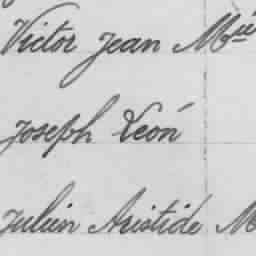 Victor Jean Mie
Joseph Léon
Julien Aristide M